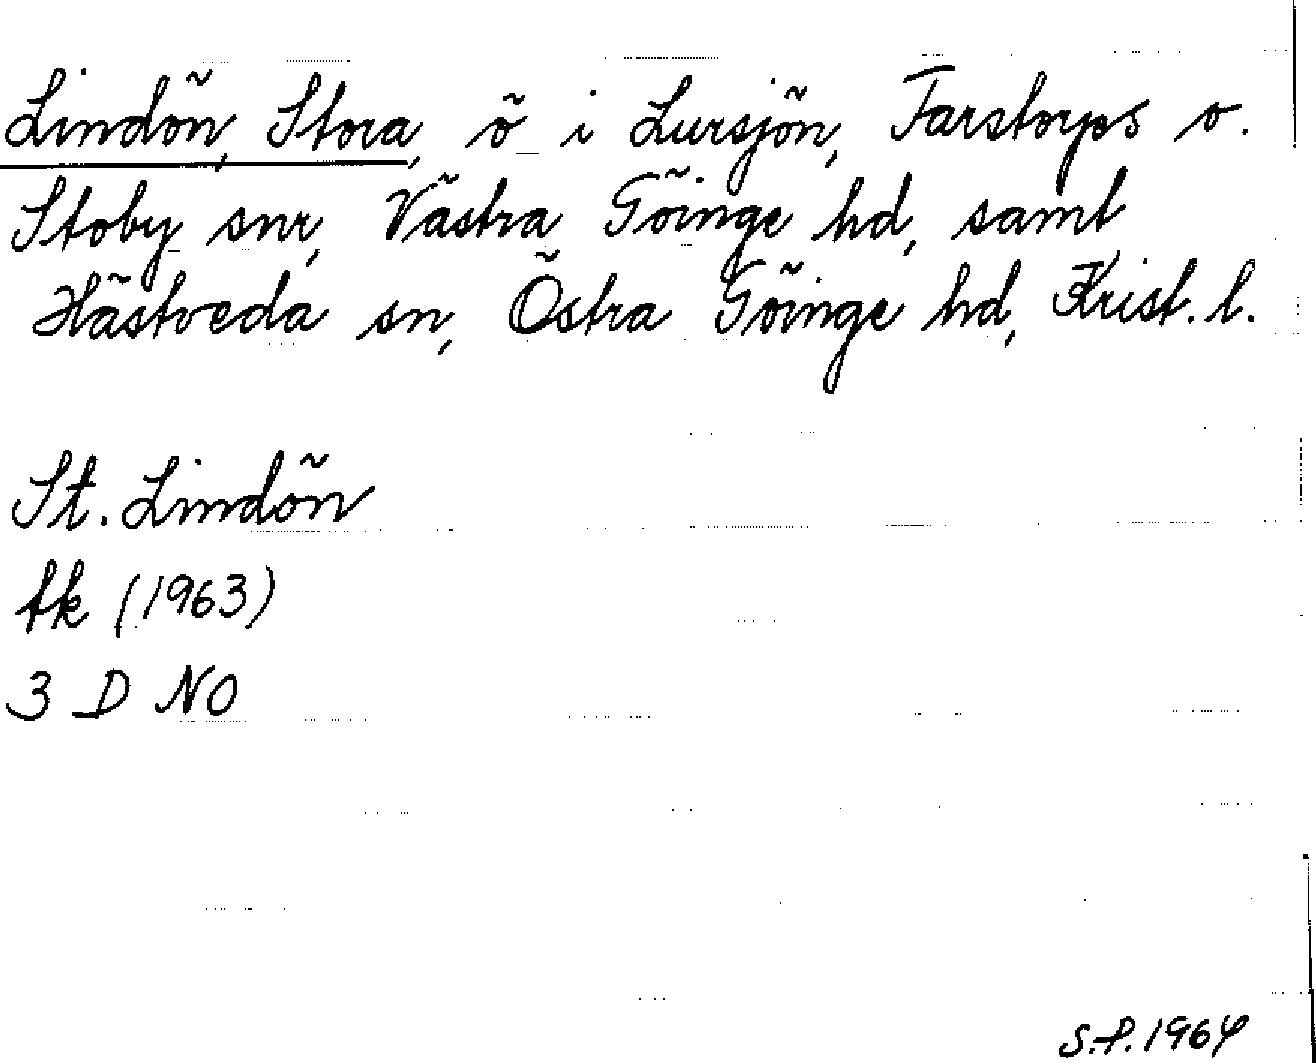 Lindön, Stora, ö i Lursjön, Farstorps o.
Stoby snr, Västra Göinge hd, samt
Hästveda sn, Östra Göinge hd, Krist. l.
St. Lindön
tk (1963)
3 D NO
S.P. 1964